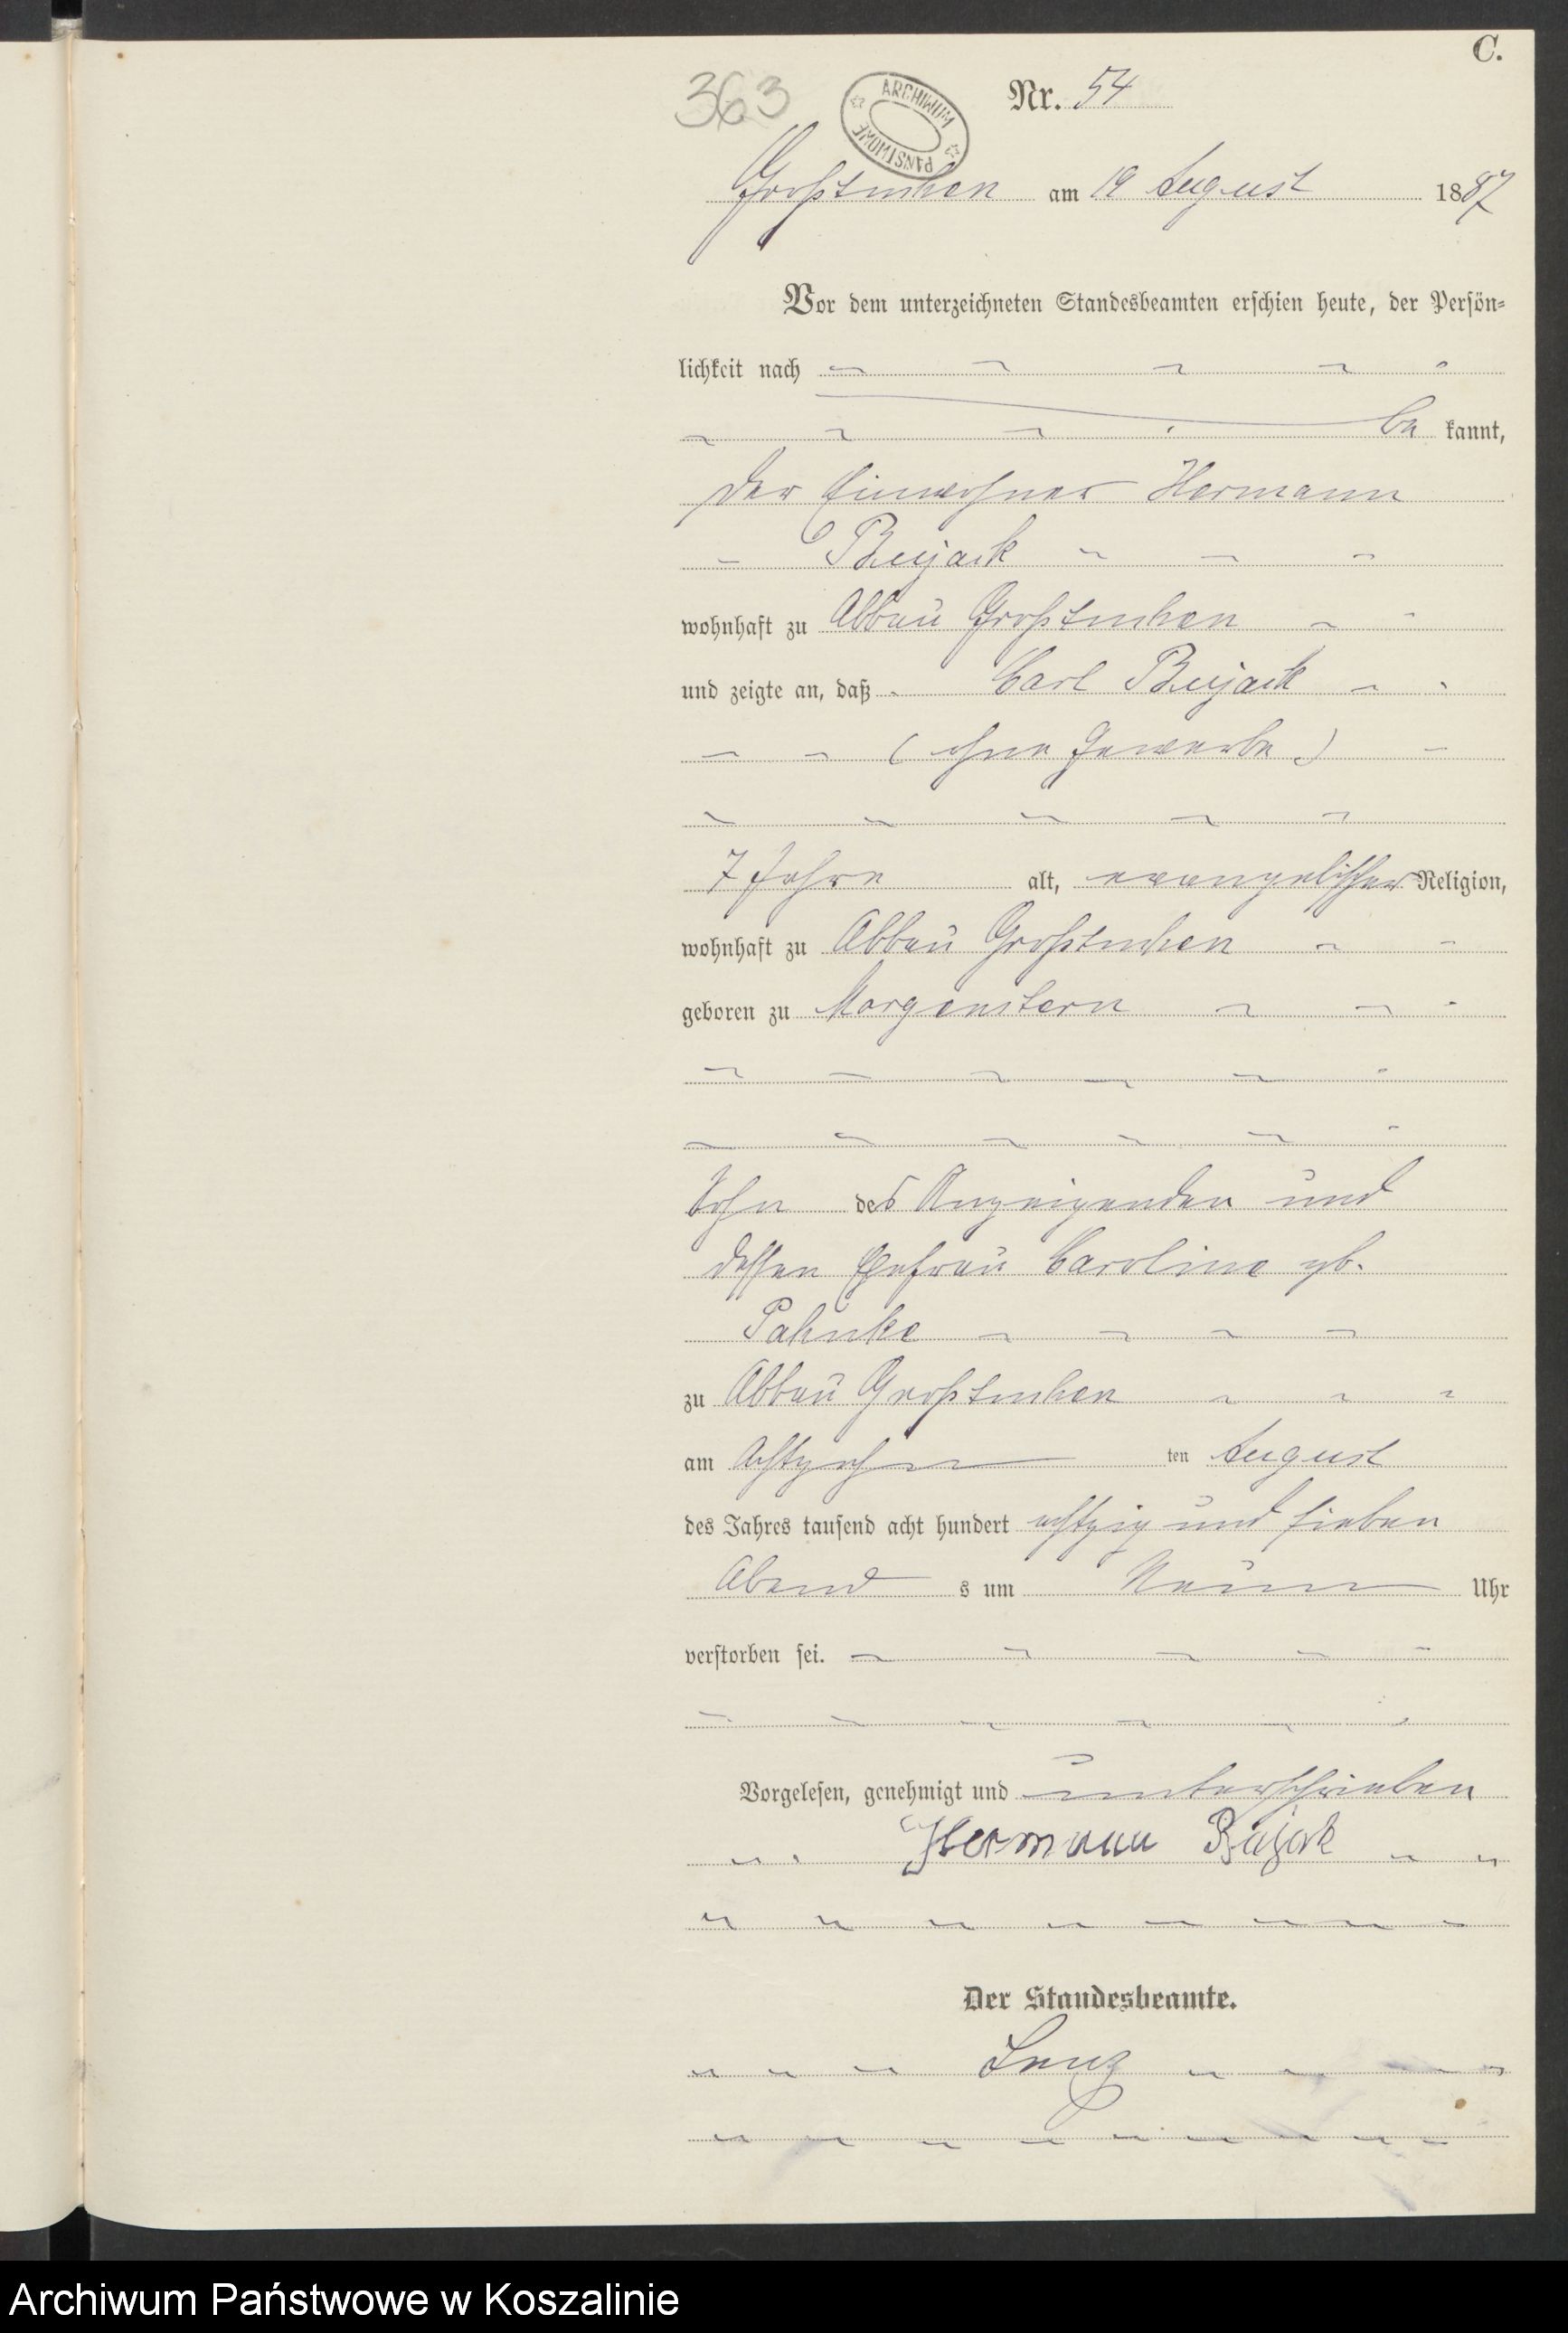 C.
363
ARCHIWUM PAŃSTWOWE
Nr. 54
Großtuchen am 19 August 1887
Vor dem unterzeichneten Standesbeamten erschien heute, der Persön-
lichkeit nach
be kannt,
der Einwohner Hermann
Bujack
wohnhaft zu Abbau Großtuchen
und zeigte an, daß Carl Bujack
(ohne Gewerbe)
7 Jahre alt, evangelischer Religion,
wohnhaft zu Abbau Großtuchen
geboren zu Morgenstern
Sohn des Anzeigenden und
dessen Ehefrau Caroline gb.
Pahnke
zu Abbau Großtuchen
am Achtzehn ten August
des Jahres tausend acht hundert achtzig und sieben
Abend s um Neun Uhr
verstorben sei.
Vorgelesen, genehmigt und unterschrieben
Hermann Bujak
Der Standesbeamte.
Lenz
Archiwum Państwowe w Koszalinie